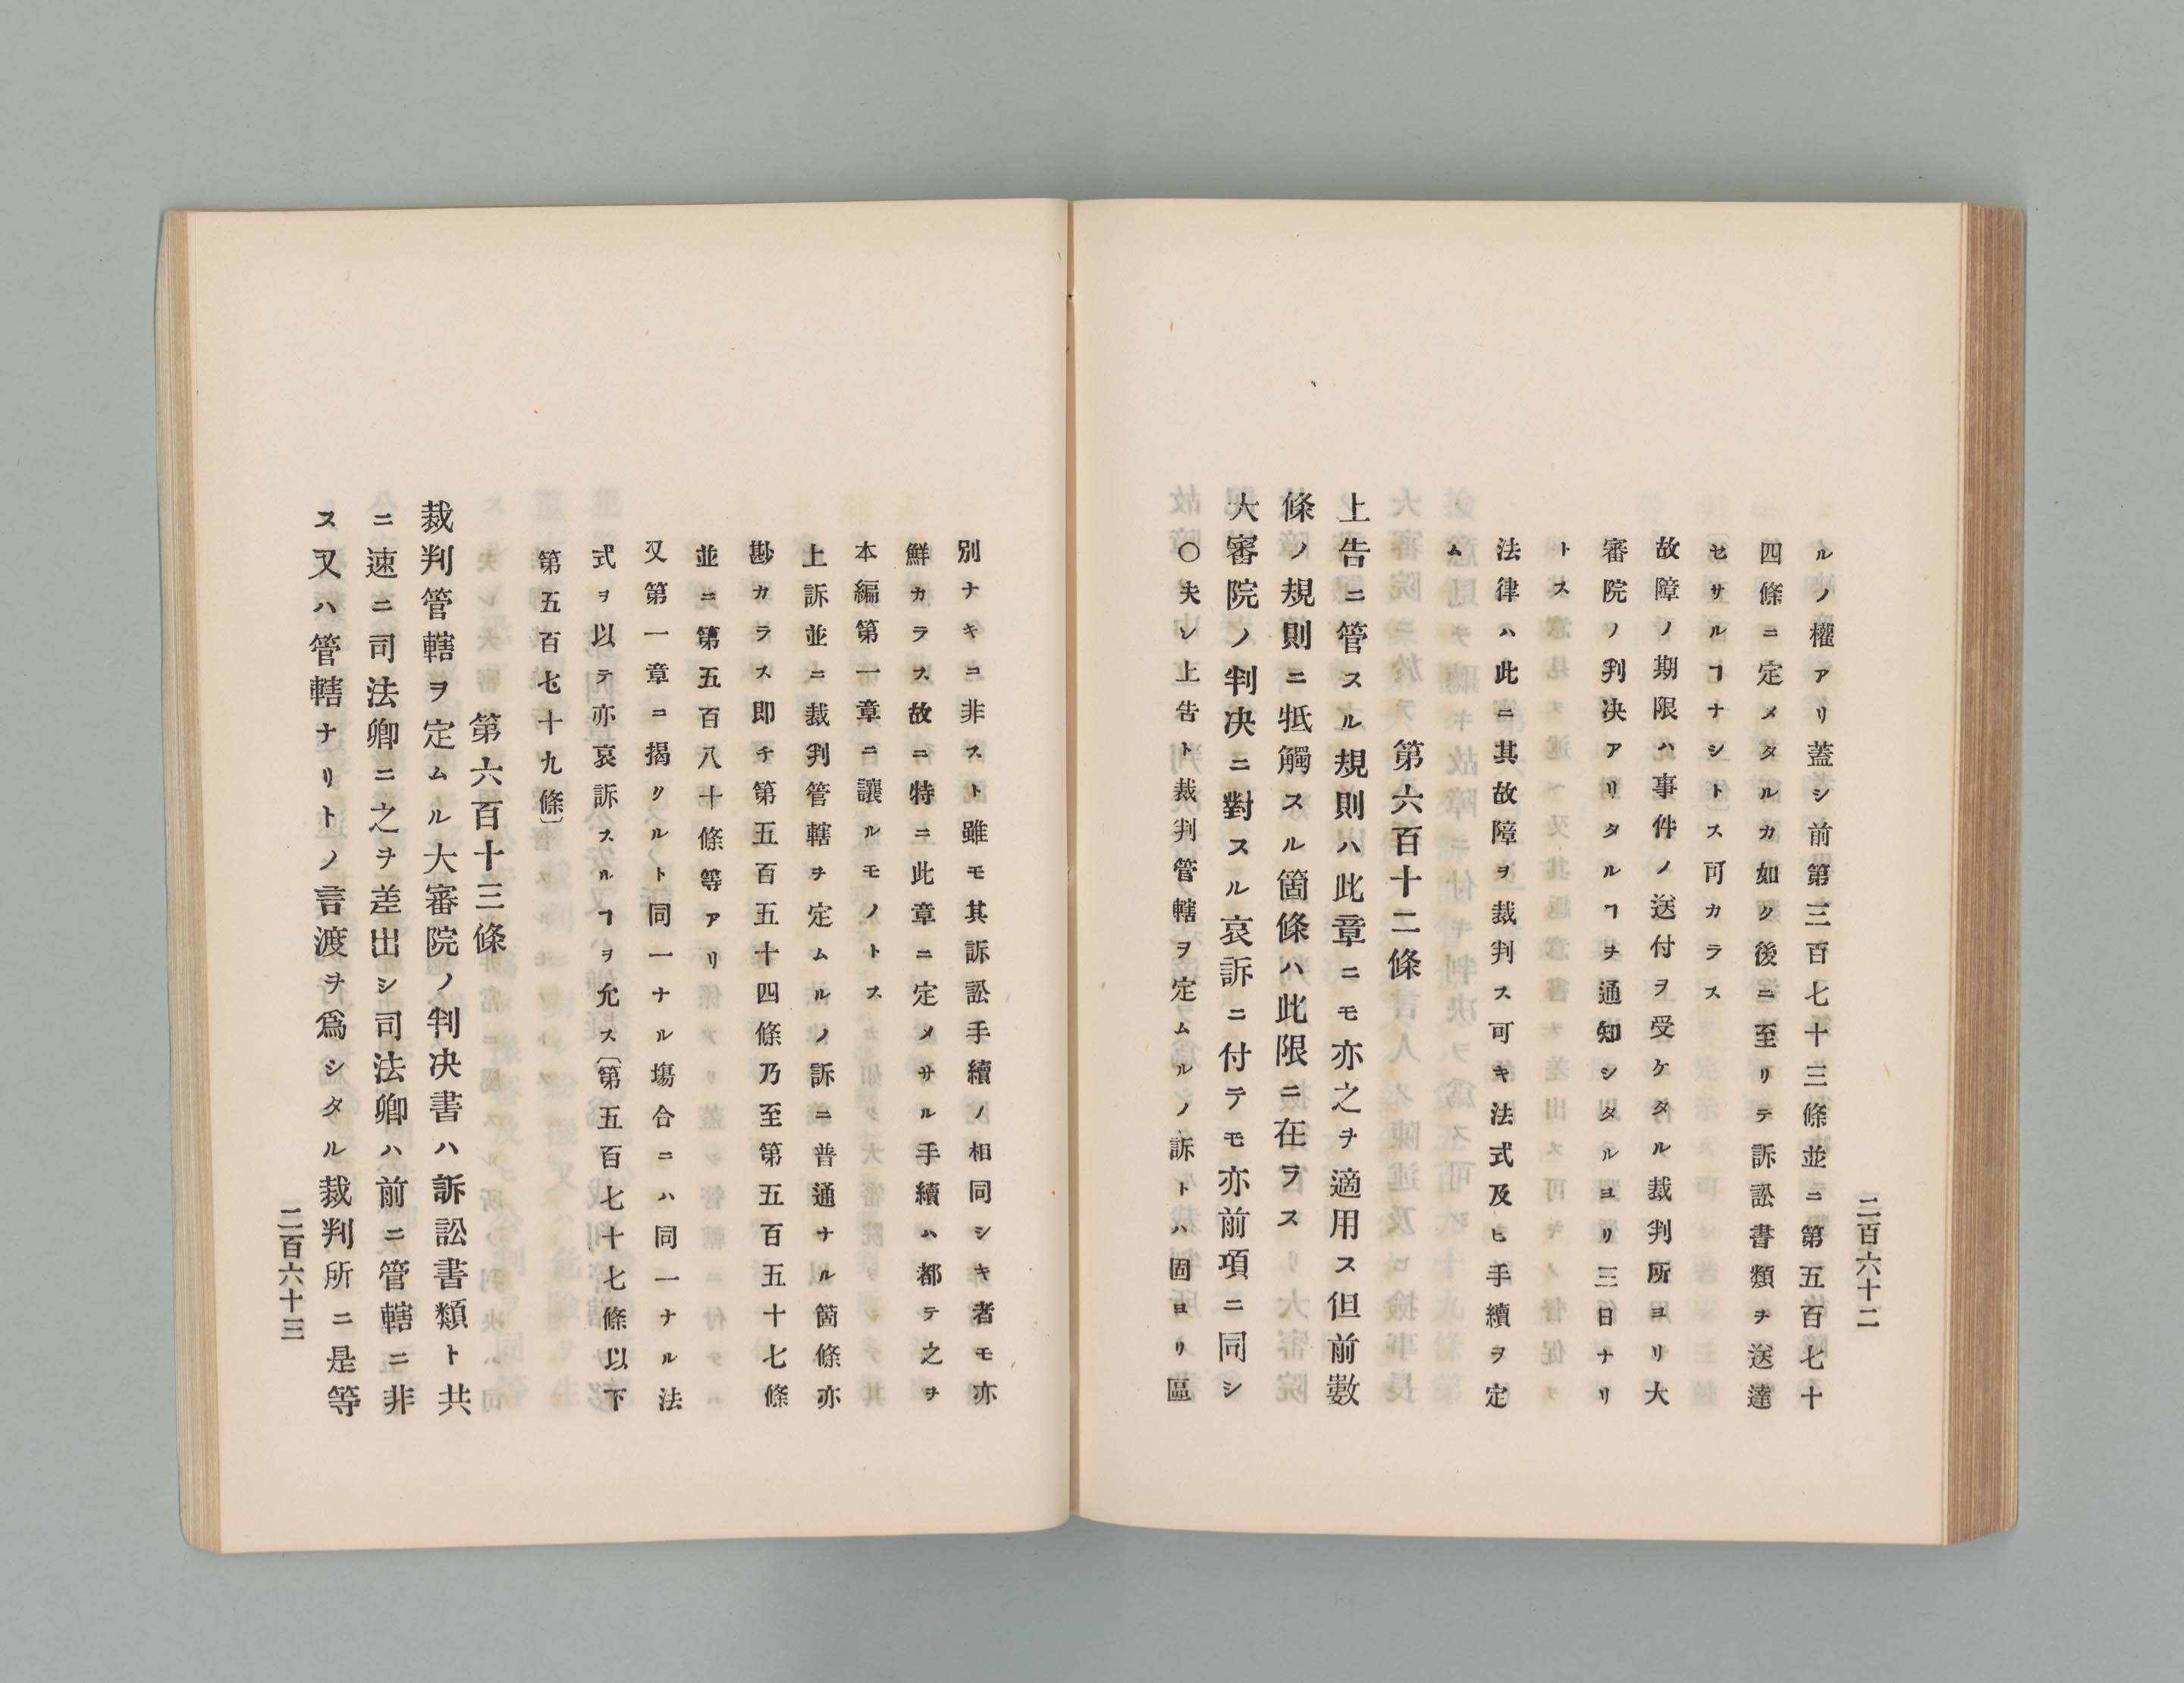 二百六十二
ルノ權アリ蓋シ前第三百七十三條並ニ第五百七十
四條ニ定メタルカ如ク後ニ至リテ訴訟書類ヲ送達
セサルヿナシトス可カラス
故障ノ期限ハ事件ノ送付ヲ受ケタル裁判所ヨリ大
審院ノ判决アリタルヿヲ通知シタルヨリ三日ナリ
トス
法律ハ此ニ其故障ヲ裁判ス可キ法式及ヒ手續ヲ定
ム
第六百十二條
上告ニ管スル規則ハ此章ニモ亦之ヲ適用ス但前數
條ノ規則ニ牴觸スル箇條ハ此限ニ在ラス
大審院ノ判决ニ對スル哀訴ニ付テモ亦前項ニ同シ
〇夫シ上告ト裁判管轄ヲ定ムルノ訴トハ固ヨリ區
別ナキニ非スト雖モ其訴訟手續ノ相同シキ者モ亦
鮮カラス故ニ特ニ此章ニ定メサル手續ハ都テ之ヲ
本編第一章ニ讓ルモノトス
上訴並ニ裁判管轄ヲ定ムルノ訴ニ普通ナル箇條亦
尠カラス即チ第五百五十四條乃至第五百五十七條
並ニ第五百八十條等アリ
又第一章ニ揭クルト同一ナル塲合ニハ同一ナル法
式ヲ以テ亦哀訴スルヿヲ允ス〔第五百七十七條以下
第五百七十九條〕
第六百十三條
裁判管轄ヲ定ムル大審院ノ判决書ハ訴訟書類ト共
ニ速ニ司法卿ニ之ヲ差出シ司法卿ハ前ニ管轄ニ非
ス又ハ管轄ナリトノ言渡ヲ爲シタル裁判所ニ是等
二百六十三